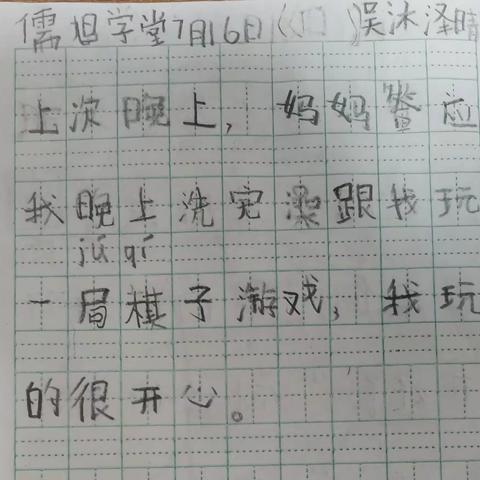 儒旭学堂7月16日 吴沐泽晴
上次晚上,妈妈答应
我晚上洗完澡跟我玩
jú qí
一局棋子游戏,我玩
的很开心。